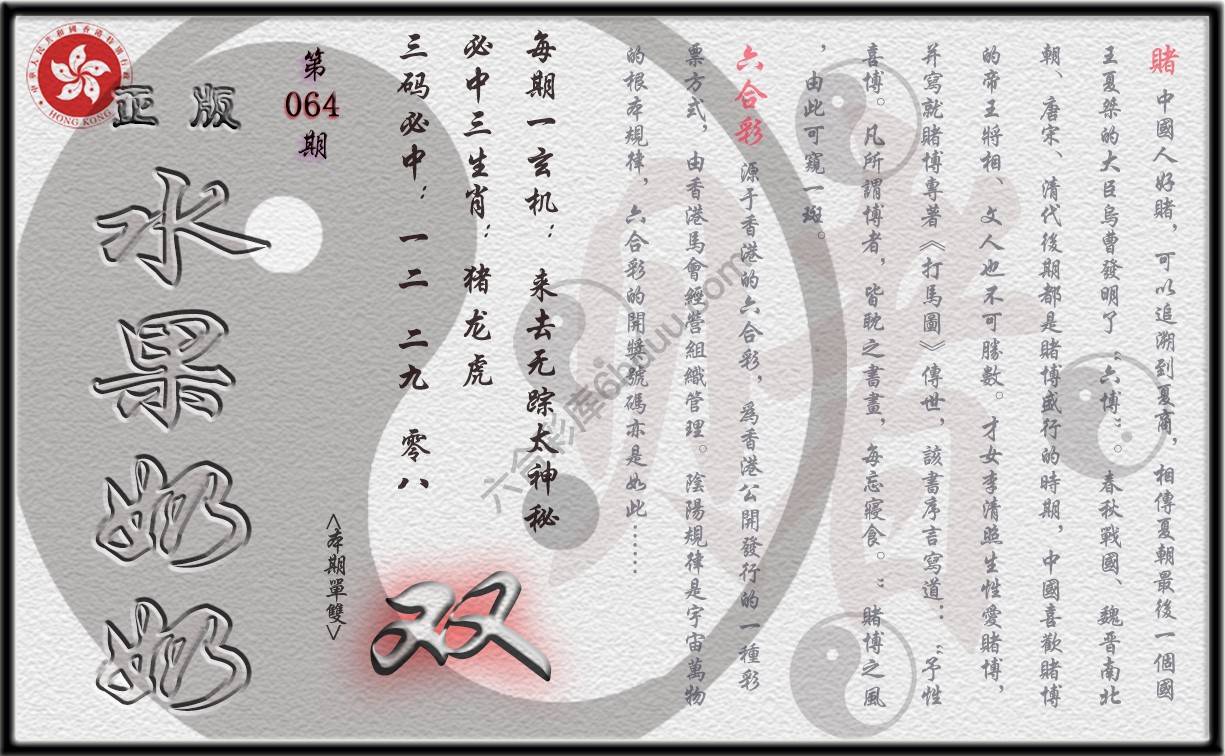 賭 中國人好賭，可以追溯到夏商，相傳夏朝最後一個國
王夏桀的大臣烏曹發明了“六博”。春秋戰國、魏晋南北
朝、唐宋、清代後期都是賭博盛行的時期，中國喜歡賭博
的帝王將相、文人也不可勝數。才女李清照生性愛賭博，
并寫就賭博專著《打馬圖》傳世，該書序言寫道：“予性
喜博。凡所謂博者，皆耽之書畫，每忘寢食。”賭博之風
，由此可窺一斑。
六合彩 源于香港的六合彩，爲香港公開發行的一種彩
票方式，由香港馬會經營組織管理。陰陽規律是宇宙萬物
的根本規律，六合彩的開獎號碼亦是如此······
每期一玄机：来去无踪太神秘
必中三生肖：猪龙虎
三码必中：一二 二九 零八
<本期單雙>
双
第
064
期
正版
水果奶奶
HONG KONG
六合彩库6hduu.com